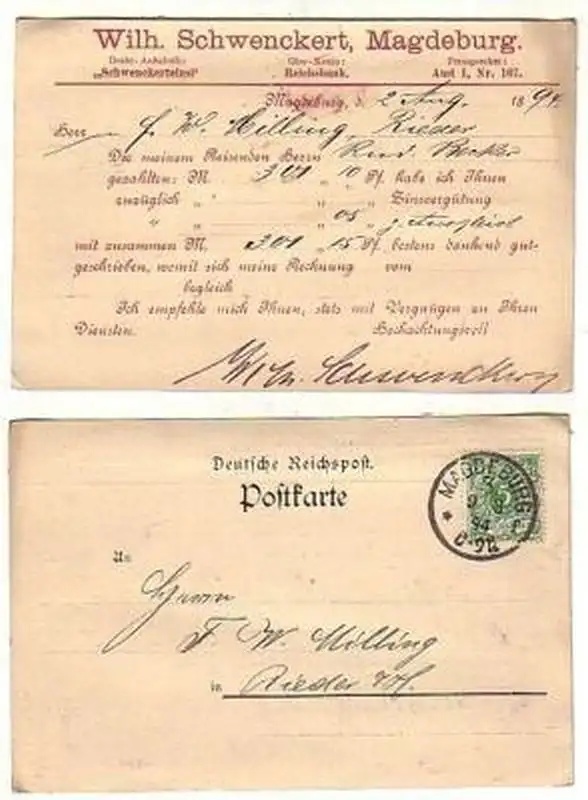 Wilh. Schwenckert, Magdeburg.
Draht-Anschrift: Giro-Konto: Fernsprecher:
„Schwenckerteinst“ Reichsbank. Amt I, Nr. 167.
Magdeburg, d. 2 Aug. 1894
Herr F. W. Milling, Rieder
Die meinem Reisenden Herrn Rud. Becker
gezahlten: M. 301 „ 10 Pf. habe ich Ihnen
zuzüglich „ „ Zinsvergütung
„ „ 05 „ z. Ausgleich
mit zusammen M. 301 „ 15 Pf. bestens dankend gut-
geschrieben, womit sich meine Rechnung vom
begleich
Ich empfehle mich Ihnen, stets mit Vergnügen zu Ihren
Diensten. Hochachtungsvoll
Wilh. Schwenckert
Deutsche Reichspost.
Postkarte
MAGDEBURG
94
An
Herrn
F. W. Milling
in Rieder a/H.